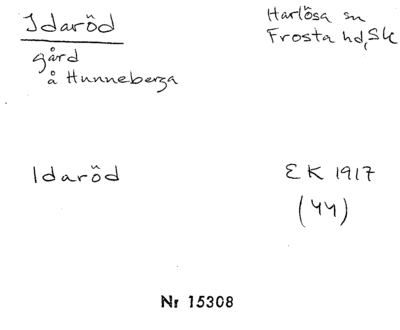 Idaröd
Harlösa sn
Frosta hd, Sk
gård
å Hunneberga
Idaröd
EK 1917
(44)
Nr 15308